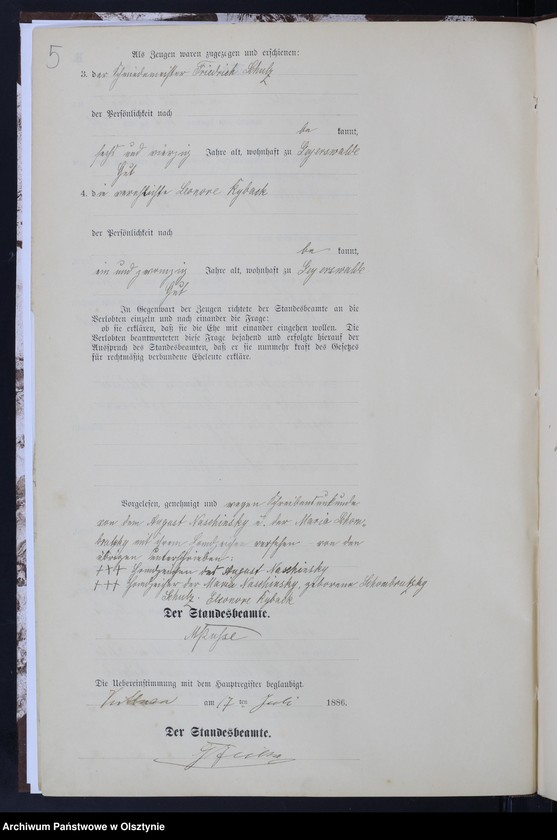 5
Als Zeugen waren zugegen und erschienen:
3. der Schmiedemeister Friedrich Schulz
der Persönlichkeit nach
be kannt,
sechs und vierzig Jahre alt, wohnhaft zu Geyerswalde
Gut
4. die verehelichte Leonore Kyback
der Persönlichkeit nach
be kannt,
ein und zwanzig Jahre alt, wohnhaft zu Geyerswalde
Gut
In Gegenwart der Zeugen richtete der Standesbeamte an die
Verlobten einzeln und nach einander die Frage:
ob sie erklären, daß sie die Ehe mit einander eingehen wollen. Die
Verlobten beantworteten diese Frage bejahend und erfolgte hierauf der
Ausspruch des Standesbeamten, daß er sie nunmehr kraft des Gesetzes
für rechtmäßig verbundene Eheleute erkläre.
Vorgelesen, genehmigt und wegen Schreibensunkunde
von dem August Naschinsky u. der Maria
mit ihrem Handzeichen versehen von den
übrigen unterschrieben:
+++ Handzeichen des August Naschinsky
+++ Handzeichen der Maria Naschinsky, geborenen
Schulz. Eleonore Kyback
Der Standesbeamte.
Die Uebereinstimmung mit dem Hauptregister beglaubigt.
am 17 ten Juli 1886.
Der Standesbeamte.
Archiwum Państwowe w Olsztynie